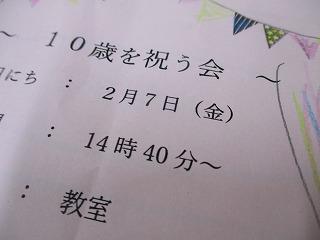 ～ １０歳を祝う会 ～
にち ： ２月７日（金）
： 14時40分～
： 教室